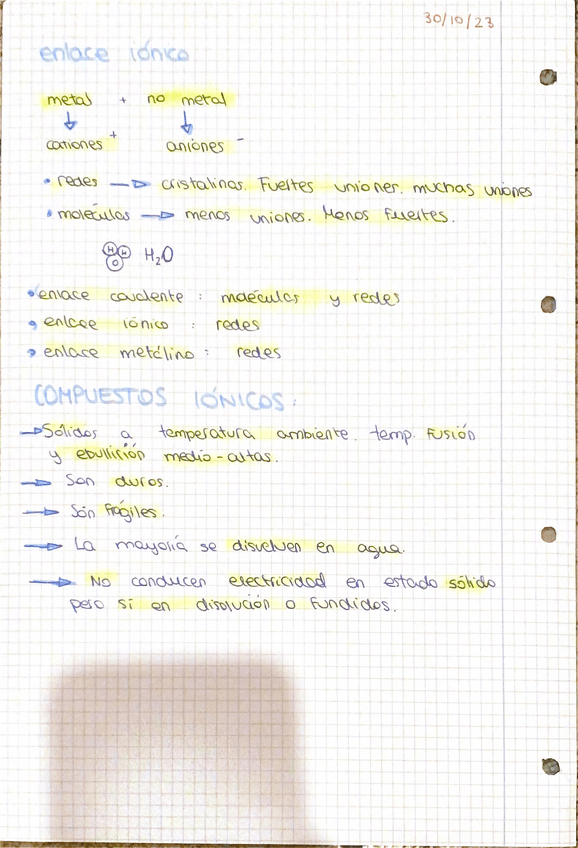 30/10/23
enlace iónico
metal + no metal
cationes + aniones -
• redes → cristalinas. Fuertes uniones. muchas uniones
• moléculas → menos uniones. Menos fuertes.
H H O H₂O
• enlace covalente : moléculas y redes
• enlace iónico : redes
• enlace metálino : redes
COMPUESTOS IÓNICOS:
→ Sólidos a temperatura ambiente. temp. fusión
y ebullición medio-altas.
→ Son duros.
→ Són frágiles.
→ La mayoría se disuelven en agua.
→ No conducen electricidad en estado sólido
pero sí en disolución o fundidos.